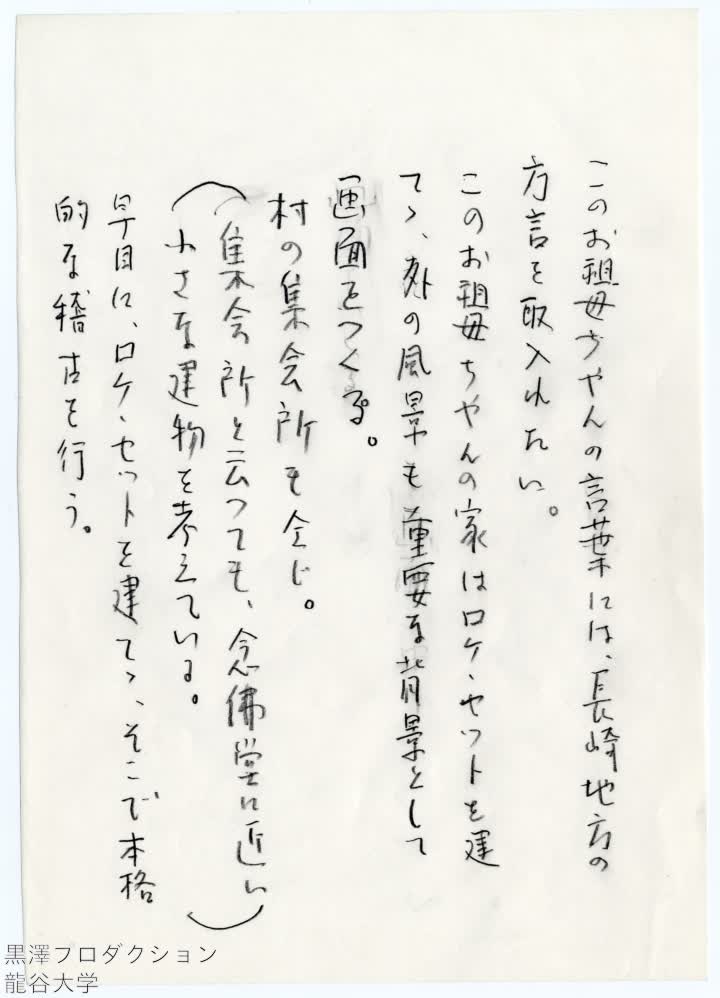 このお祖母ちやんの言葉には、長崎地方の
方言を取入れたい。
このお祖母ちやんの家はロケ・セットを建
てゝ、外の風景も重要な背景として
画面をつくる。
村の集会所も仝じ。
（集会所と云つても、念佛堂に近い
小さな建物を考えている。）
早目に、ロケ・セットを建てゝ、そこで本格
的な稽古を行う。
黒澤プロダクション
龍谷大学